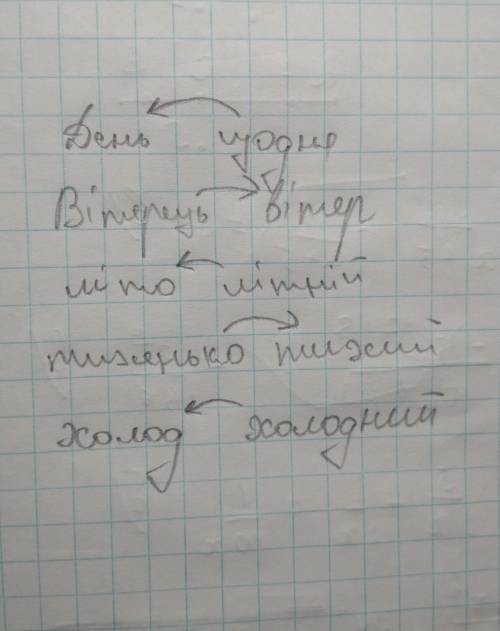 День щодня
Вітерець вітер
літо літній
тихенько тихий
холод холодний